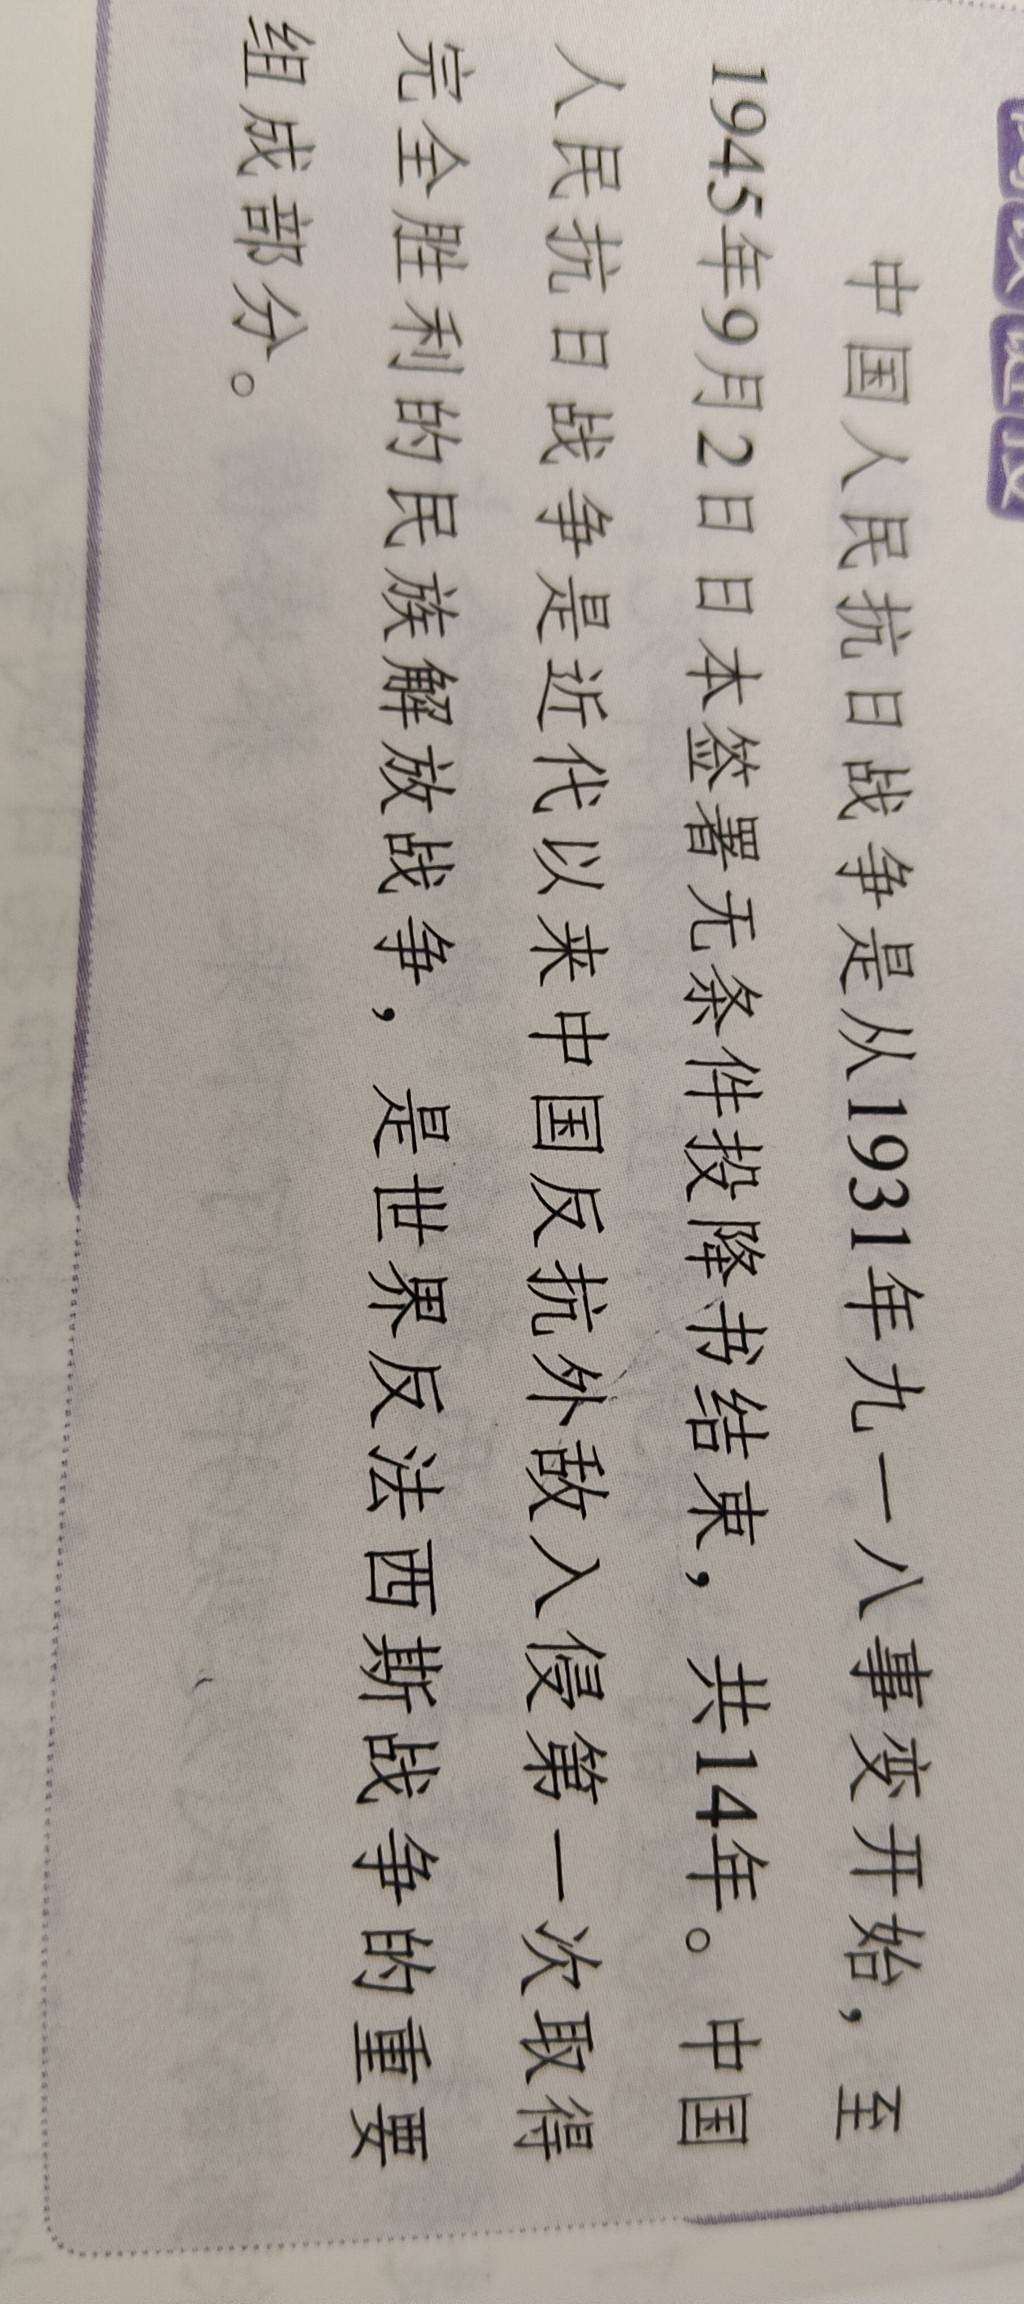 中国人民抗日战争是从1931年九一八事变开始，至
1945年9月2日日本签署无条件投降书结束，共14年。中国
人民抗日战争是近代以来中国反抗外敌入侵第一次取得
完全胜利的民族解放战争，是世界反法西斯战争的重要
组成部分。